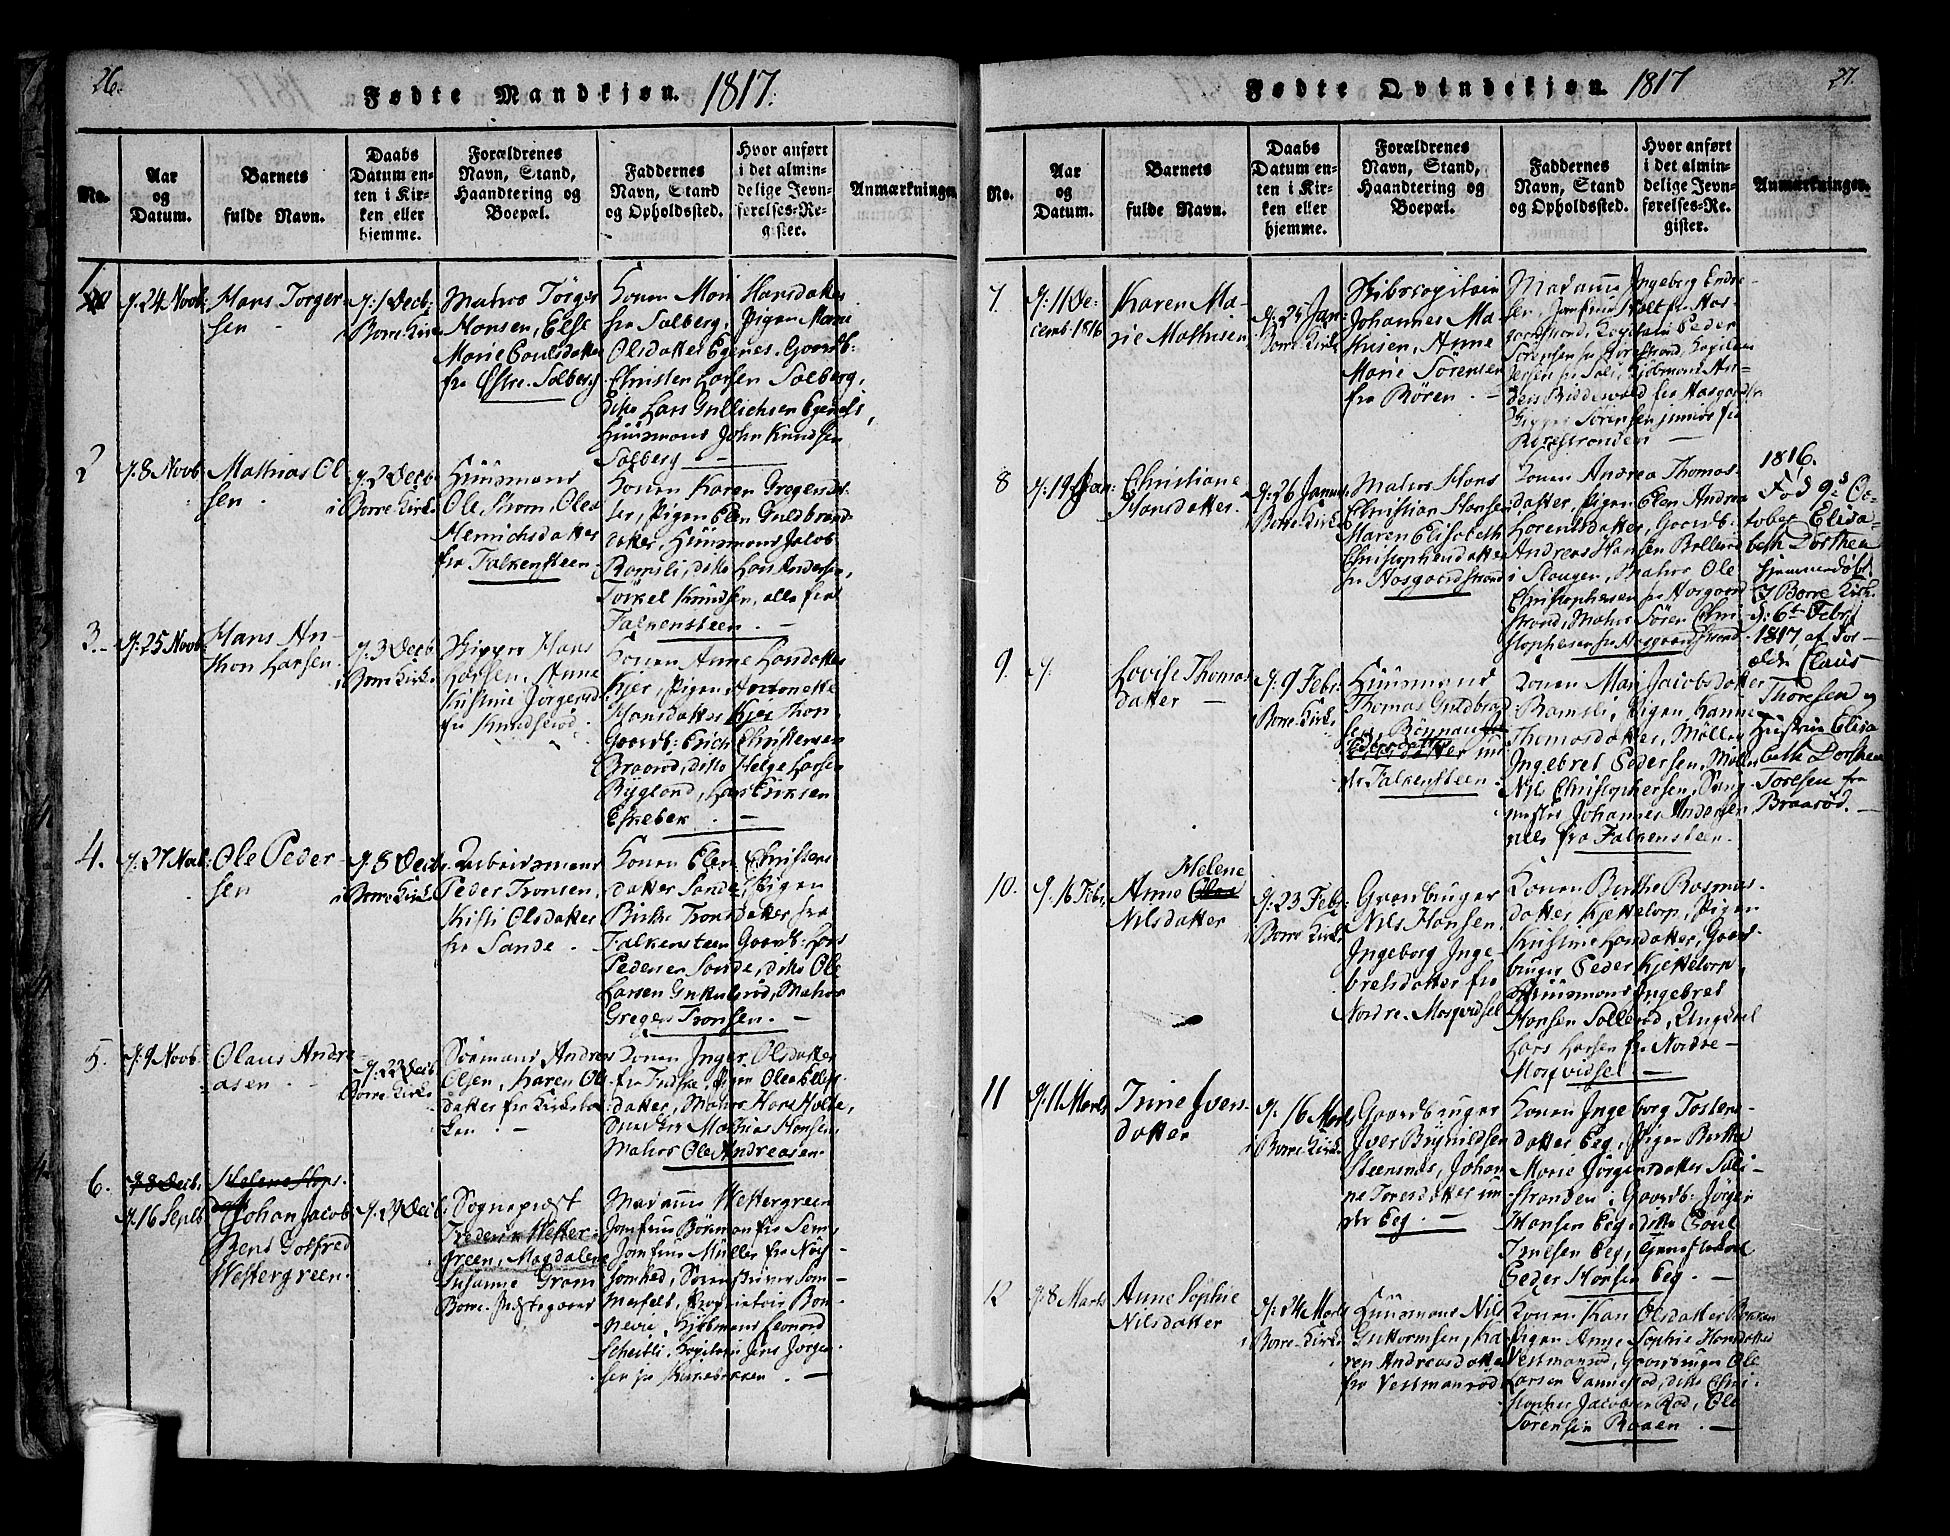 26.
Fødte Mandkjøn. 1817.
No.
Aar
og
Datum.
Barnets
fulde Navn.
Daabs
Datum en-
ten i Kir-
ken eller
hjemme.
Forældrenes
Navn, Stand,
Haandtering og
Boepæl.
Faddernes
Navn, Stand
og Opholdssted.
Hvor anført
i det almin-
delige Jevn-
førelses-Re-
gister.
Anmærkninger.
1
d: 24 Novb:
Hans Torger
sen
d: 1 Decb:
i Borre Kirke
Matros Törger
Hansen, Else
Marie Poulsdatter
fra Østre-Solberg
Konen Mari Hansdatter
fra Solberg, Pigen Maria
Olsdatter Egenes, Gaardb:
Christen Larsen Solberg,
ditto Lars Gullichsen Egenes,
Huusmand John Knudsen
Solberg
2
d: 8 Novb
Mathias Ol
sen
d: 2 Decb
i Borre Kirke
Huusmand
Ole Strøm, Olea
Henrichsdatter
fra Falkensteen
Konen Karen Gregers-
ser, Pigen Elen Guldbrands
datter, Huusmand Jacob
Ramsli, ditto Lars Andersen,
Törkel Knudsen, alle fra
Falkensteen.
3.
d: 25 Novb
Hans An-
thon Larsen
d: 3 Decb
i Borre Kirke
Skipper Hans
Larsen, Anne
Kistine Jørgensd
fra Knudsrød.
Konen Anne Larsdatter
Kjær, Pigen Antonette
Hansdatter Kjær Thon
Gaardb: Erich Christensen
Braarød, ditto Helge Larsen
Ryglond, Lars Eriksen
Eskebek.
4.
d: 27 Novb:
Ole Peder
sen
d: 8 Decb
i Borre Kirke
Arbeidsmand
Peder Tronsen,
Kisti Olsdatter
fra Sande.
Konen Elen Christens
datter Sande, Pigen
Birthe Trons datter fra
Falkensteen Gaardb: Lars
Pedersen Sande, ditto Ole
Larsen Gnkulsrød, Matros
Gregers Tronsen.
5.
d: 9 Novb
Olaus Andre
asen
d: 22 Decb
i Borre Kirke
Sømand Andreas
Olsen, Karen Ols
datter fra Kirkebak
ken.
Konen Inger Olsdatter
fra Fuske, Pigen Olea Ellefs
datter, Matros Hans Holte,
Snedker Mathias Hansen,
Matros Ole Andreasen.
6.
d: 8 Decb.
d: 16 Septb
Helene Hans.
dtt Johan Jacob
Bens Gotfred
Westergreen.
d: 29 Decb
Sogneprest
Frederik Wester-
green, Magdalene
Susanne Gram
Borre Prestegaard
Madame Westergreen
Jomfrue Börman fra Sem
Jomfrue Müller fra Nøs-
somhed, Sorenskriver Som-
merfelt, Proprietair Bon-
nevie, Kjøbmand Leonord
Scheitli, Kapitain Jens Jørgen
sen fra Kirkebakken.
27.
Fødte Qvindekjøn. 1817
No.
Aar
og
Datum.
Barnets
fulde Navn.
Daabs
Datum en-
ten i Kir-
ken eller
hjemme.
Forældrenes
Navn, Stand,
Haandtering og
Boepæl.
Faddernes
Navn, Stand
og Opholdssted.
Hvor anført
i det almin-
delige Jevn-
førelses-Re-
gister.
Anmærkninger.
7.
d: 11 De-
cemb. 1816
Karen Ma-
rie Mathisen
d: 25 Jan:
Borre Kirke
Skibscapitain
Johannes Ma-
thisen, Anne
Marie Sörensen
fra Bören.
Madame Ingeborg Endre-
sen, Jomfrue Holt fra Aas-
gaardstrand, Kapitain Peder
Sörensen fra Horestrand, Kapitain
Jersen fra Soli, Kjöbmand An-
ders Riddervold fra Aasgaardstr
Skipper Sörensen junior fra
Borrestranden
8
d: 19 Jan:
Christiane
Hansdatter.
d: 26 Januar
Borre Kirke
Matros Hans
Christian Hansen
Maren Elisabeth
Christophersdatter
fra Aasgaardstrand
Konen Andrea Thomas-
datter, Pigen Elen Andrea
Lorentsdatter, Gaardb:
Andreas Hansen Bolland
i Slaugen, Matros Ole
Christophersen fra Aasgaard
strand, Matros Sören Chri-
stophersen fra Aasgaardstrand.
1816.
Fød 9d Oc-
tober Elisa-
beth Dorthea
hjemmedøbt
I Borre Kirk:
d: 6te Febr:
1817, af For-
ældr. Claus
Thoresen og
Hustrue Elisa
beth Dorthea
Toresen fra
Braarød.
9.
d:
Lovise Thomas
datter
d: 9 Febr:
Borre Kirke
Huusmand
Thomas Guldbrand
sen, Rönnau
Pedersdatter un
der Falkensteen.
Konen Mari Jacobsdatter
Ramsli, Pigen Hanne
Thomasdatter, Møller
Ingebret Pedersen, Møller
Nils Christophersen, Smug
mester Johannes Andersen
alle fra Falkensteen.
10.
d: 16 Febr.
Helene
Anne Olea
Nilsdatter
d: 23 Febr
i Borre Kirke
Gaardbruger
Nils Hansen,
Ingeborg Inge-
bretsdatter fra
Nordre-Morqvidsel
Konen Birthe Rasmus-
datter Kjettelorp, Pigen
Kristine Larsdatter, Gaard-
bruger Peder Kjettelorp,
Huusmand Ingebret
Hansen Sollerød, Ungkarl
Lars Larsen fra Nordre-
Morqvidsel
11
d: 11 Marts
Trine Ivers-
datter
d: 16 Marts
i Borre Kirke
Gaardbruger
Iver Brynildsen
Steensnæs, Johan
ne Toresdatter un
der Eeg.
Konen Ingeborg Tostens-
datter Eeg, Pigen Berthe
Marie Jörgensdatter Soli-
stranden, Gaardb: Jörgen
Hansen Eeg, ditto Poul
Truelsen Eeg,
Peder Hansen Eeg.
12
d: 8 Marts
Anne Sophie
Nilsdatter
d: 24 Marts
i Borre Kirke
Huusmand Nils
Guttormsen, Ka
ren Andreasdatter
fra Vestmanrød
Konen Kari Olsdatter
Pigen Anne Sophie Hansdatter
Vestmanrød, Gaardbruger Ole
Larsen Sannerød, ditto Chri-
stopher Jacobsen Rød, Ole
Sörensen Roaen